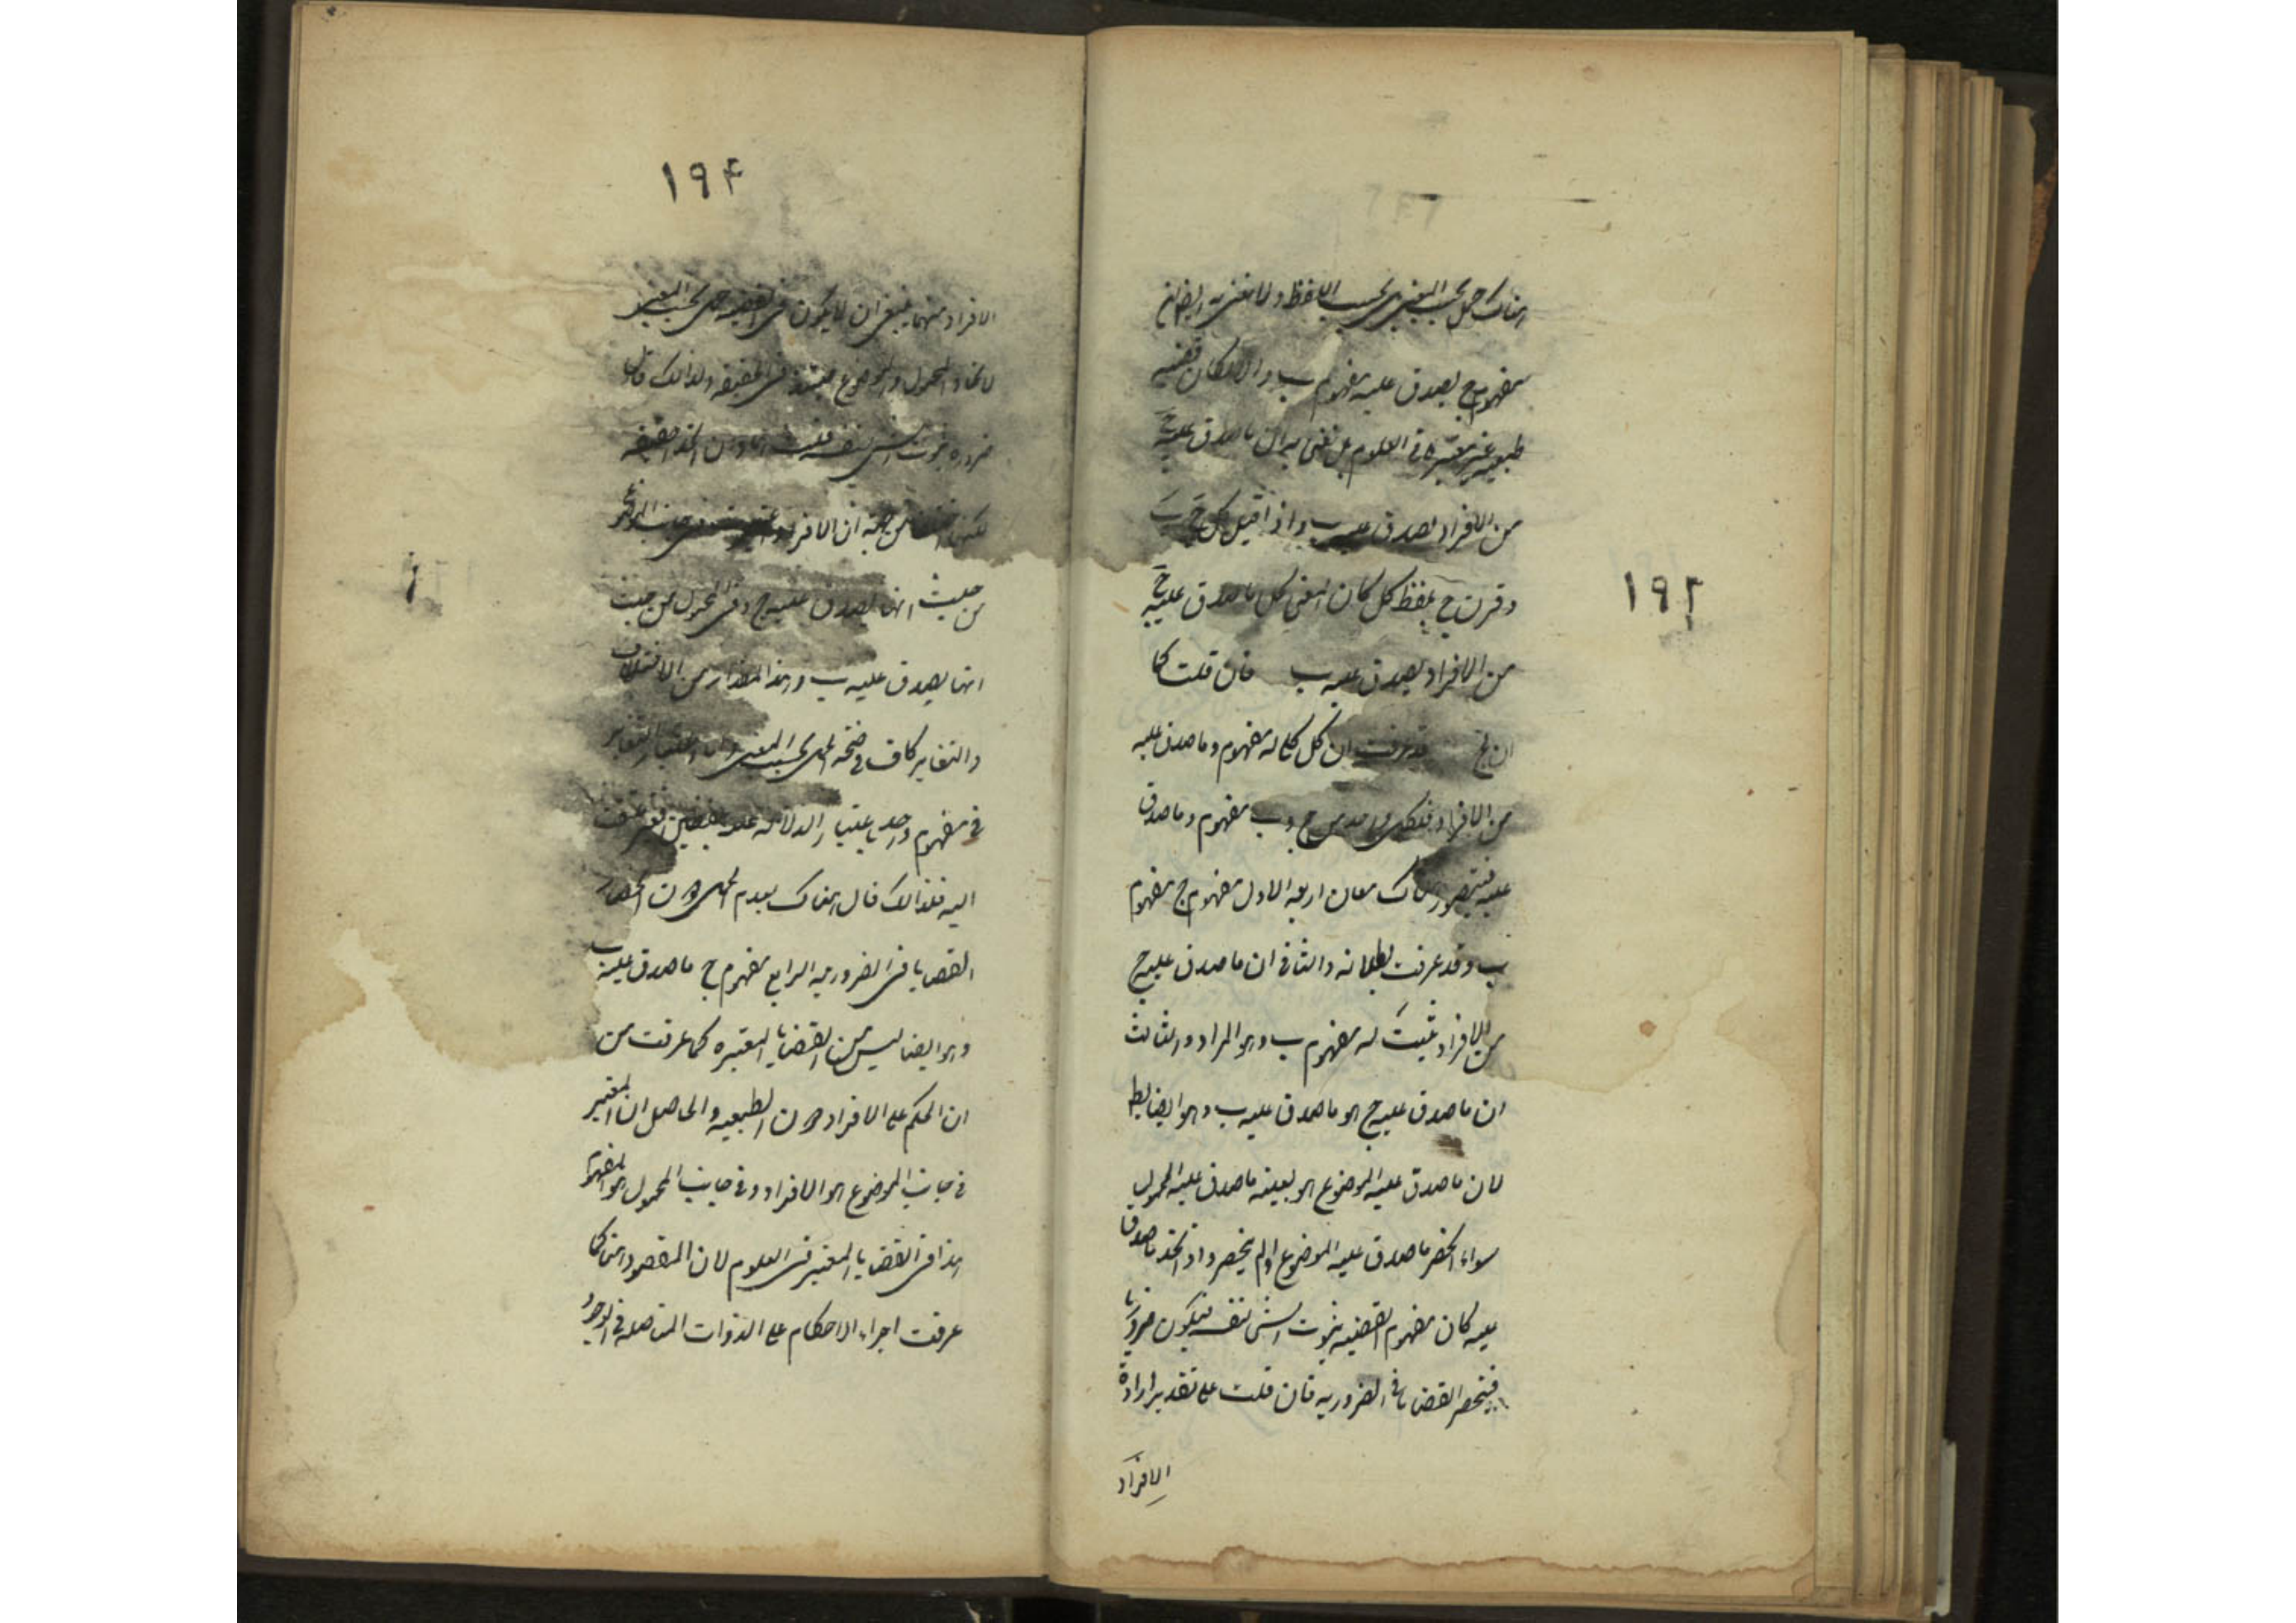 هناك حمل بحسب المعنى بل بحسب اللفظ ولا نعنى به ايضا ان
مفهوم ج يصدق عليه مفهوم ب والا لكان قضية
طبيعية غير معتبرة فى العلوم بل نعنى به ان ما صدق عليه ج
من الافراد يصدق عليه ب واذا قيل كل ج ب
وقرن ج بلفظ كل كان المعنى كل ما صدق عليه ج
من الافراد يصدق عليه ب فان قلت كما
ان ج قد عرفت ان كل كلى له مفهوم وما صدق عليه
من الافراد فلكل واحد من ج وب مفهوم وما صدق
عليه فيتصور هناك معان اربعه الاول مفهوم ج مفهوم
ب وقد عرفت بطلانه والثانى ان ما صدق عليه ج
من الافراد ثبت له مفهوم ب وهو المراد والثالث
ان ما صدق عليه ج هو ما صدق عليه ب وهو ايضا بط
لان ما صدق عليه الموضوع هو بعينه ما صدق عليه المحمول
سواء انحصر ما صدق عليه الموضوع او لم ينحصر واذ اتحد ما صدقا
عليه كان مفهوم القضيه ثبوت الشى لنفسه فيكون ضروريا
فينحصر القضايا فى الضروريه فان قلت على تقدير ارادة
الافراد
١٩٢
١٩٤
الافراد منهما ينبغى ان لا يكون فى القضيه حمل بحسب المعنى
لاتحاد المحمول والموضوع فى الحقيقه ولذلك قال
ضروره ثبوت الشى لنفسه قلت
من جهة ان الافراد
من حيث انها يصدق عليه ج وفى المحمول من حيث
انها يصدق عليه ب وهذا المقدار من الاختلاف
والتغاير كاف فى صحة الحمل بحسب المعنى
فى مفهوم واحد باعتبار الدلاله عليه بلفظين
اليه فلذلك قال هناك بعدم الحمل دون انحصار
القضايا فى الضروريه الرابع مفهوم ج ما صدق عليه ب
وهو ايضا ليس من القضايا المعتبره كما عرفت من
ان الحكم على الافراد دون الطبيعيه والحاصل ان المعتبر
فى جانب الموضوع هو الافراد وفى جانب المحمول هو المفهوم
هذا فى القضايا المعتبر فى العلوم لان المقصود هنا كما
عرفت اجراء الاحكام على الذوات المتاصله فى الوجود